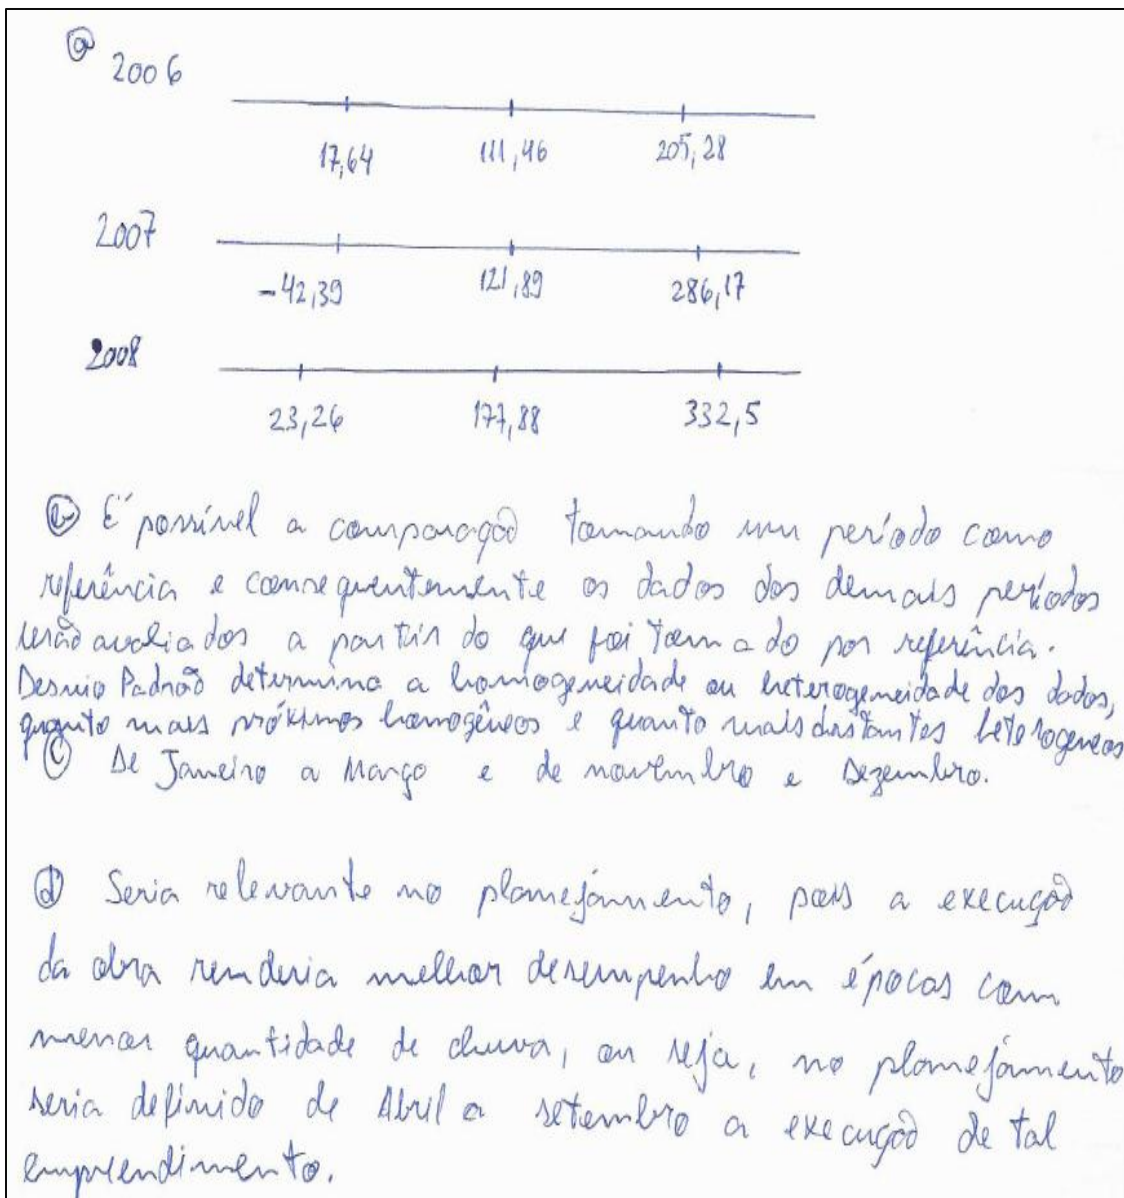 a 2006
17,64 111,46 205,28
2007
-42,39 121,89 286,17
2008
23,26 177,88 332,5
b É possível a comparação tomando um período como
referência e consequentemente os dados dos demais períodos
serão avaliados a partir do que foi tomado por referência.
Desvio Padrão determina a homogeneidade ou heterogeneidade dos dados,
quanto mais próximos homogêneos e quanto mais distantes heterogeneos
c De Janeiro a Março e de novembro e Dezembro.
d Seria relevante no planejamento, pois a execução
da obra renderia melhor desempenho em épocas com
menor quantidade de chuva, ou seja, no planejamento
seria definido de Abril a setembro a execução de tal
empreendimento.